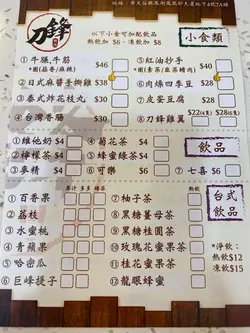 刀鋒
以下小食可加配飲品
熱飲加 $6 · 凍飲加 $8
小食類
①牛𦟌.牛筋 $46
②日式麻醬手撕雞 $38
③泰式炸花枝丸 $30
④台灣香腸 $30
⑤紅油抄手 $40
⑥肉燥四季豆 $28
⑦皮蛋豆腐 $28
⑧刀鋒雞翼
飲品
①維他奶 $4
②檸檬茶 $4
③麥精 $4
④菊花茶 $4
⑤蜂蜜綠茶 $4
⑥可樂 $6
⑦七喜 $6
台式飲品
①百香果
②荔枝
③水蜜桃
④青蘋果
⑤哈密瓜
⑥巨峰提子
⑦柚子茶
⑧黑糖薑母茶
⑨黑糖桂圓茶
⑩玫瑰花蜜果茶
⑪桂花蜜果茶
⑫龍眼蜂蜜
*淨飲：
熱飲$12
凍飲$15